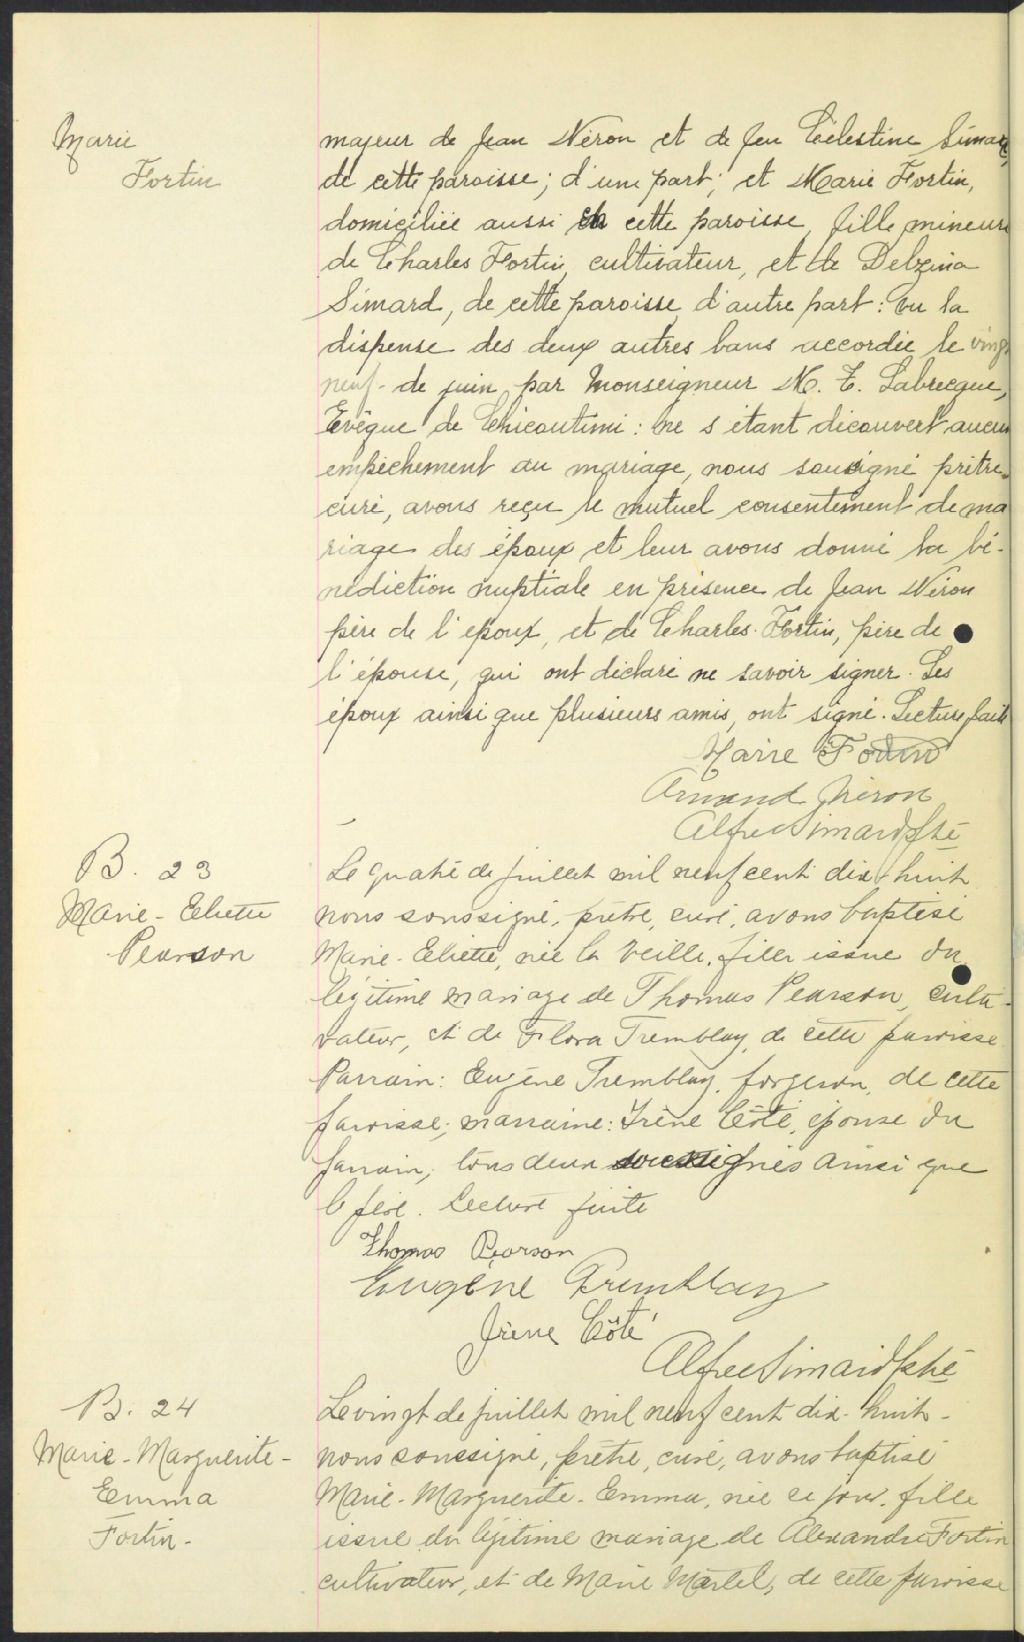 Marie
Fortin
majeur de Jean Néron et de feu Célestine Simard,
de cette paroisse; d'une part; et Marie Fortin,
domiciliée aussi en cette paroisse, fille mineure
de Charles Fortin, cultivateur, et de Delzina
Simard, de cette paroisse d'autre part: vu la
dispense des deux autres bans accordée le vingt
neuf - de juin par Monseigneur M. T. Labrecque,
Evêque de Chicoutimi: ne s'étant découvert aucun
empêchement au mariage, nous soussigné prêtre
curé, avons reçu le mutuel consentement de ma
riage des époux et leur avons donné la bé-
nédiction nuptiale en présence de Jean Néron
père de l'époux, et de Charles Fortin, père de
l'épouse, qui ont déclaré ne savoir signer. Les
époux ainsi que plusieurs amis, ont signé. Lecture faite
Marie Fortin
Armand Néron
Alfred Simard Ptre
B. 23
Marie-Eliette
Pearson
Le quatre de juillet mil neuf cent dix-huit
nous soussigné, prêtre, curé, avons baptisé
Marie-Eliette, née la veille, fille issue du
légitime mariage de Thomas Pearson, culti-
vateur, et de Flora Tremblay, de cette paroisse
Parrain: Eugène Tremblay, forgeron, de cette
paroisse; marraine: Irène Côté, épouse du
parrain, tous deux soussignés ainsi que
le père. Lecture faite
Thomas Pearson
Eugène Tremblay
Irène Côté
Alfred Simard Ptre
B. 24
Marie-Marguerite-
Emma
Fortin-
Le vingt de juillet mil neuf cent dix-huit-
nous soussigné, prêtre, curé, avons baptisé
Marie-Marguerite-Emma, née ce jour, fille
issue du légitime mariage de Alexandre Fortin
cultivateur, et de Marie Martel, de cette paroisse